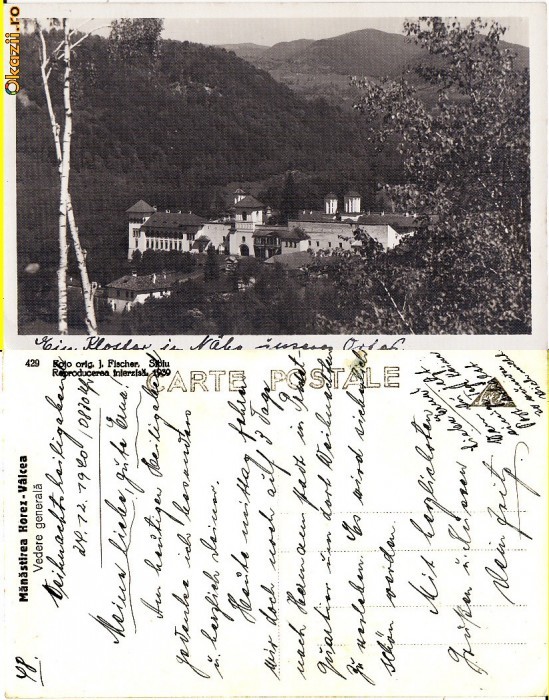 Okazii.ro
Ein Kloster in Nähe unseres Ortes
429 Foto orig. J. Fischer, Sibiu
Reproducerea interzisă, 1939
CARTE POSTALE
Mănăstirea Horez-Vâlcea
Vedere generală
48.
Weihnachtsheiligabend
24.12.1940
Meine liebe, gute
Am heutigen Heiligabend
gedenke ich besonders
u. herzlich Deiner.
Heute mittag fahren
wir doch noch auf 3 Tage
nach Hermannstadt in
Quartier um dort Weihnachten
zu verleben. Es wird sicherlich
schön werden.
Mit herzlichsten
Grüßen u. Küssen
Dein Fritz